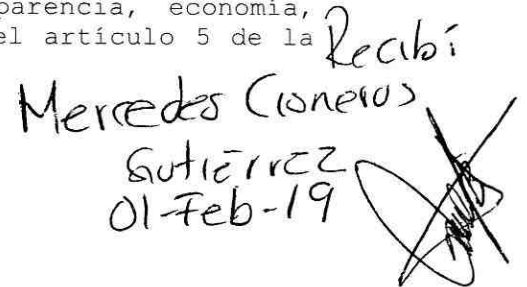 parencia, economía,
el artículo 5 de la
Recibí
Mercedes Cisneros
Gutiérrez
01-Feb-19